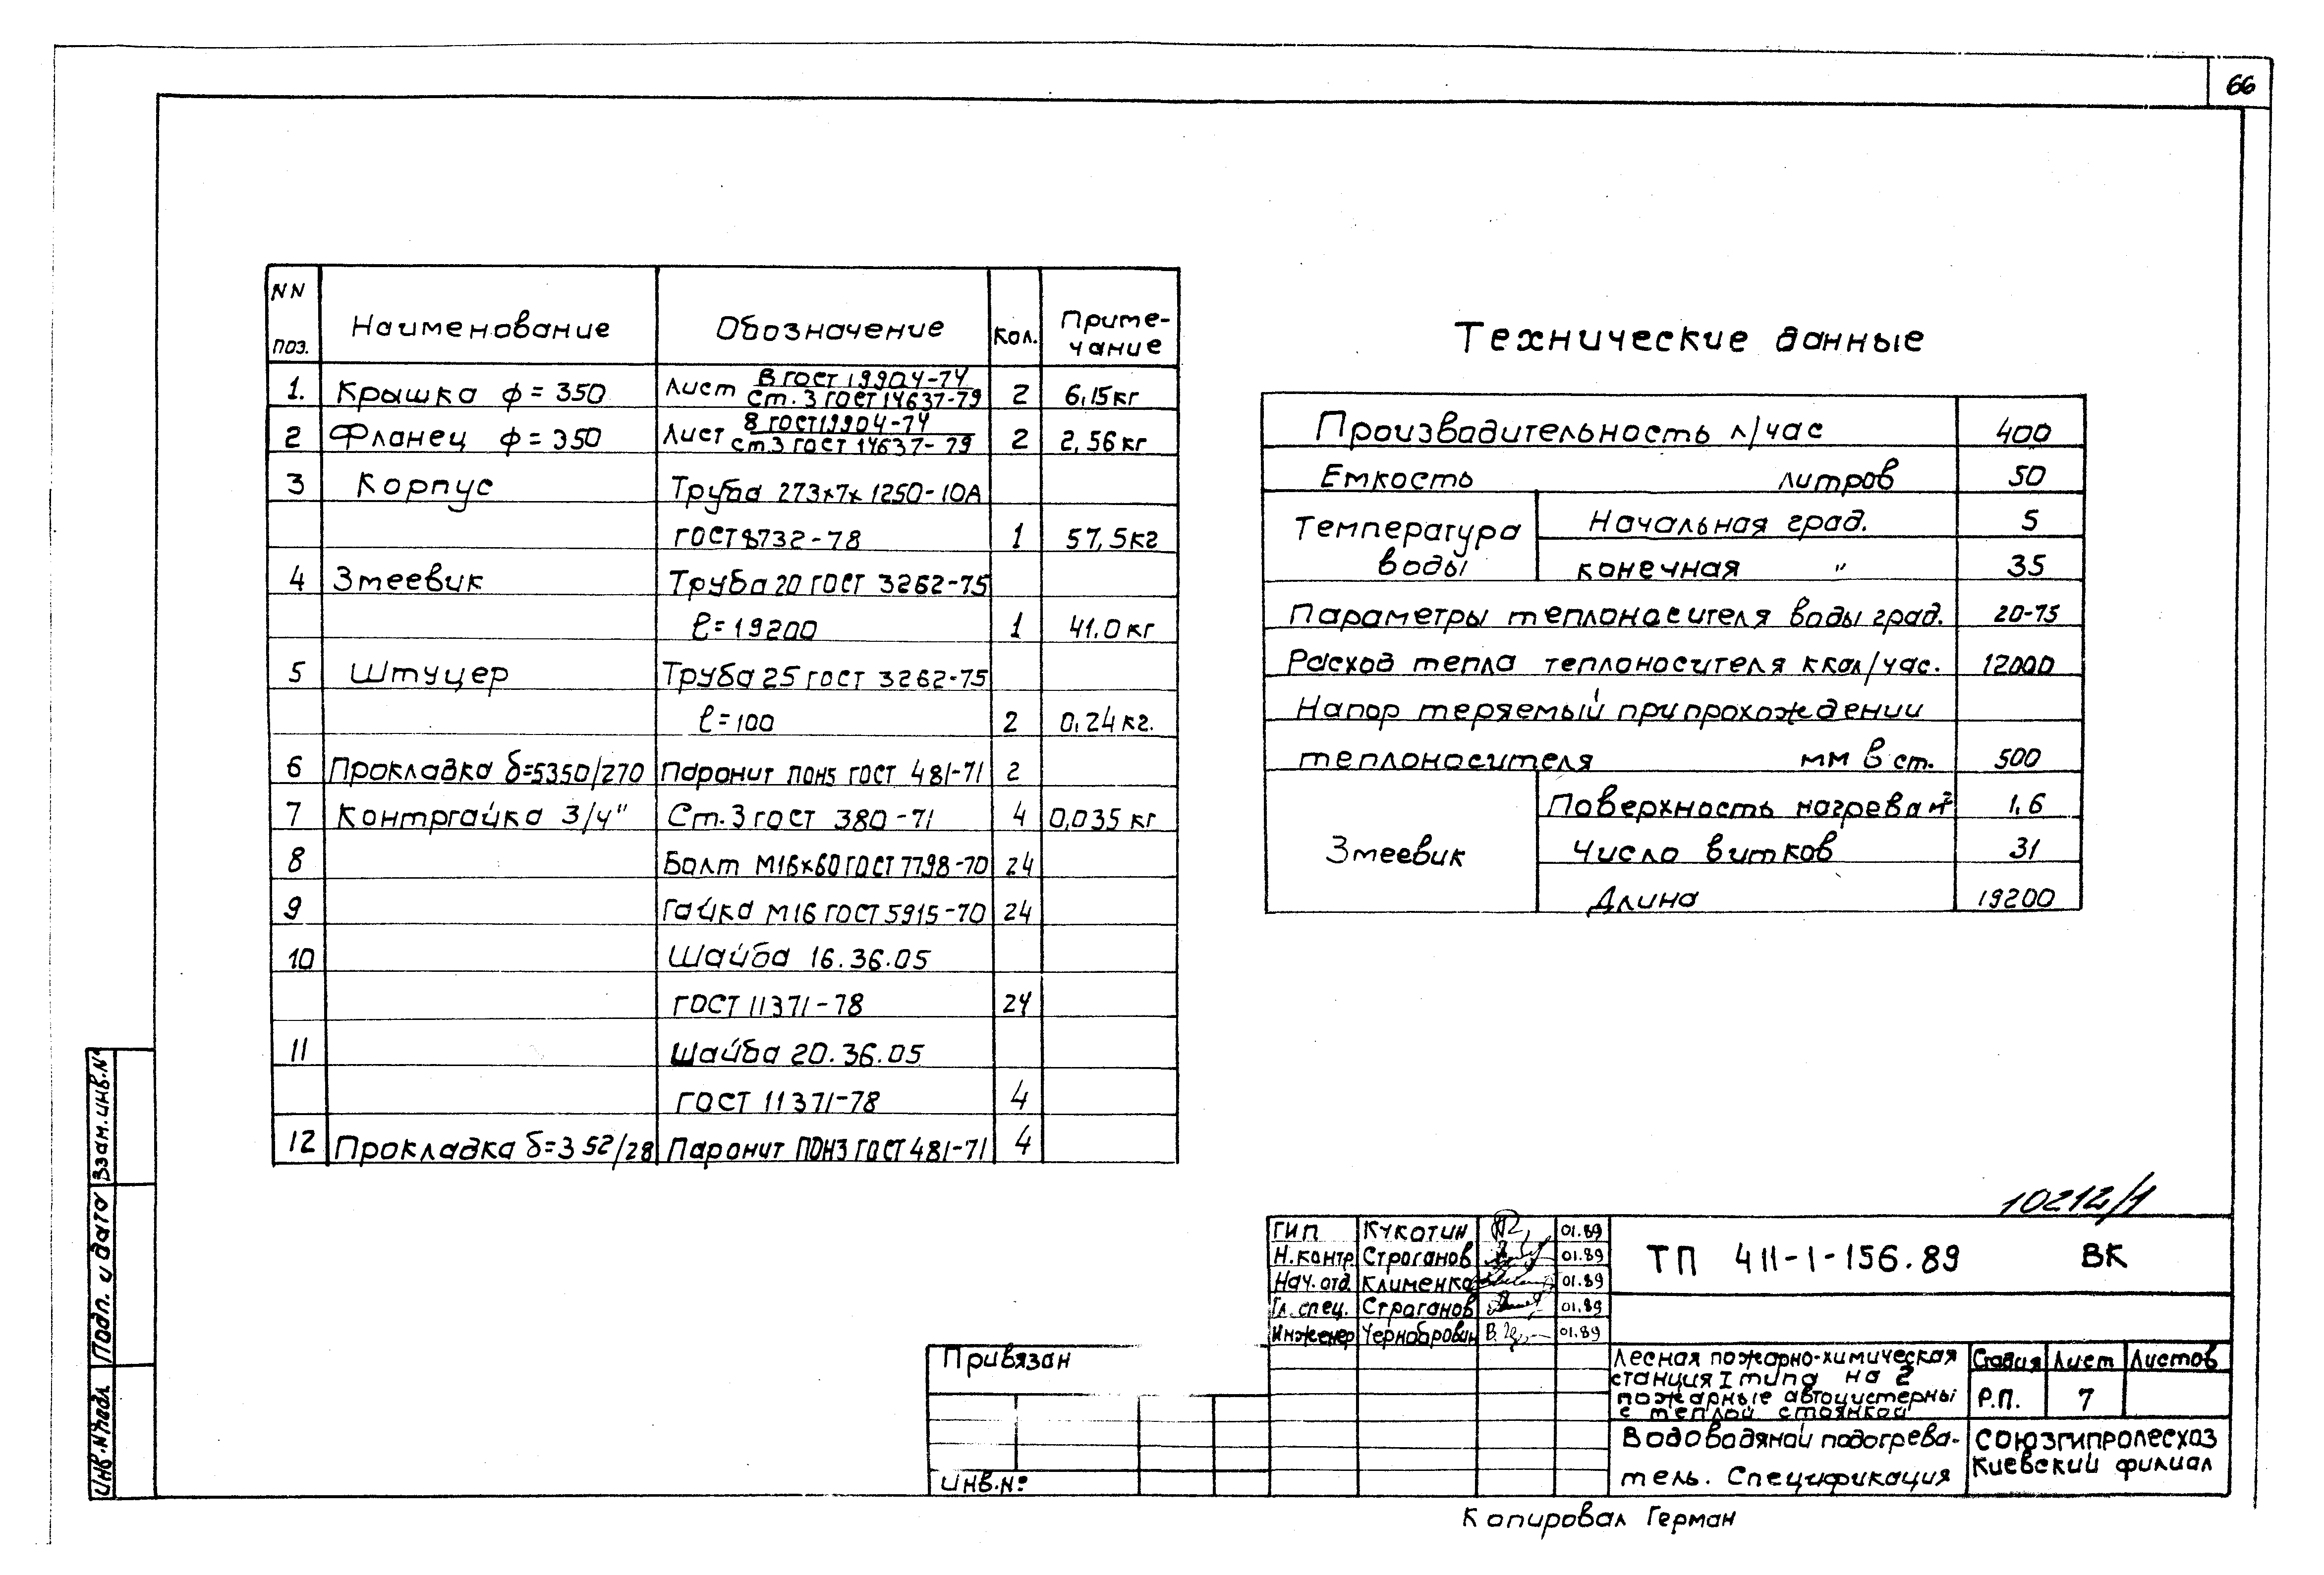 66
NN поз. Наименование Обозначение Кол. Приме-чание
1. Крышка ф=350 Лист 8 ГОСТ 19904-74 / Ст.3 ГОСТ 14637-79 2 6,15кг
2 Фланец ф=350 Лист 8 ГОСТ 19904-74 / Ст.3 ГОСТ 14637-79 2 2,56кг
3 Корпус Труба 273х7х1250-10А
ГОСТ 8732-78 1 57,5кг
4 Змеевик Труба 20 ГОСТ 3262-75
ℓ=19200 1 41.0кг
5 Штуцер Труба 25 ГОСТ 3262-75
ℓ=100 2 0,24кг.
6 Прокладка δ=5 350/270 Паронит ПОН5 ГОСТ 481-71 2
7 Контргайка 3/4" Ст.3 ГОСТ 380-71 4 0,035кг
8 Болт М16х60 ГОСТ 7798-70 24
9 Гайка М16 ГОСТ 5915-70 24
10 Шайба 16.36.05
ГОСТ 11371-78 24
11 Шайба 20.36.05
ГОСТ 11371-78 4
12 Прокладка δ=3 52/28 Паронит ПОН3 ГОСТ 481-71 4
Технические данные
Производительность л/час 400
Емкость литров 50
Температура воды Начальная град. 5
конечная " 35
Параметры теплоносителя воды град. 20-75
Расход тепла теплоносителя ккал/час. 12000
Напор теряемый при прохождении
теплоносителя мм в ст. 500
Змеевик Поверхность нагрева м² 1.6
Число витков 31
Длина 19200
10212/1
ГИП Кукотин 01.89
Н.контр. Строганов 01.89
Нач.отд. Клименко 01.89
Гл.спец. Строганов 01.89
Инженер Чернобровин 01.89
ТП 411-1-156.89 ВК
Лесная пожарно-химическая
станция I типа на 2
пожарные автоцистерны
с теплой стоянкой
Стадия Лист Листов
Р.П. 7
Водоводяной подогрева-
тель. Спецификация
Союзгипролесхоз
Киевский филиал
Привязан
Инв.№
Копировал Герман
Взам.инв.№
Подп. и дата
Инв.№подл